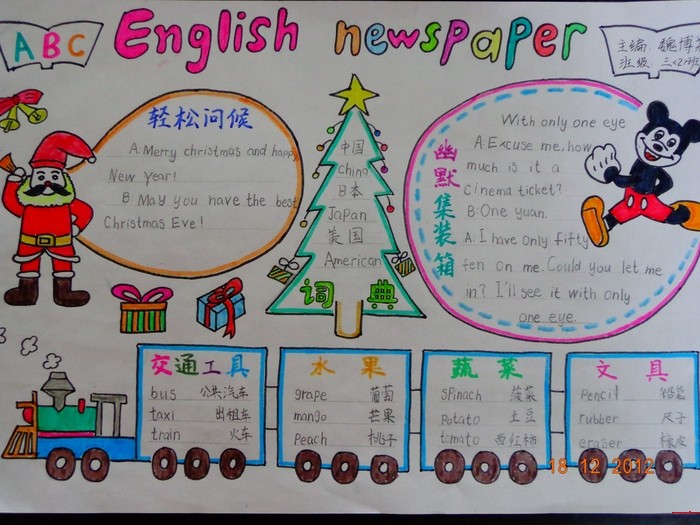 ABC
English newspaper
主编: 魏博
班级: 三<2>班
轻松问候
A: Merry christmas and happy
New year!
B: May you have the best
Christmas Eve!
中国
China
日本
Japan
美国
American
词典
幽默集装箱
With only one eye
A: Excuse me. how
much is it a
Cinema ticket?
B: One yuan.
A. I have only fifty
fen on me. Could you let me
in? I'll see it with only
one eye.
交通工具
bus 公共汽车
taxi 出租车
train 火车
水果
grape 葡萄
mango 芒果
Peach 桃子
蔬菜
Spinach 菠菜
Potato 土豆
tomato 西红柿
文具
Pencil 铅笔
rubber 尺子
eraser 橡皮
18 12 2012